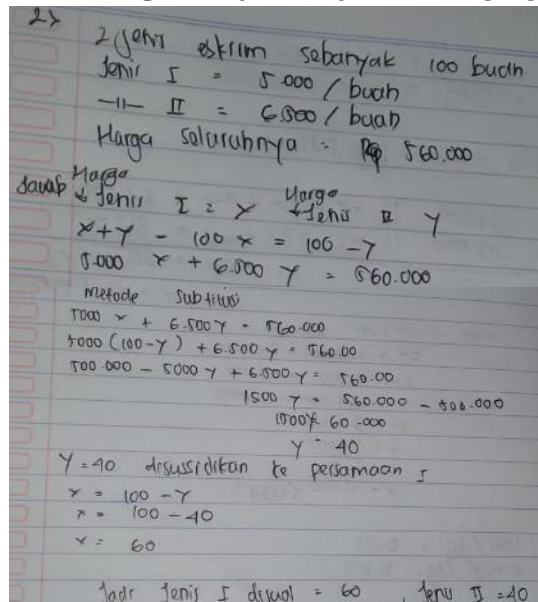 2)
2 jenis eskrim sebanyak 100 buah
Jenis I = 5.000 / buah
—11— II = 6.500 / buah
Harga seluruhnya = Rp 560.000
Jawab Harga Harga
↓ Jenis I = x ↓ Jenis II y
x + y - 100 x = 100 - y
5.000 x + 6.500 y = 560.000
metode subtitusi
5000 x + 6.500 y = 560.000
5000 (100-y) + 6.500 y = 560.00
500.000 - 5000 y + 6.500 y = 560.00
1500 y = 560.000 - 500.000
1500 y = 60.000
y = 40
y = 40 disussidikan ke persamaan I
x = 100 - y
x = 100 - 40
x = 60
Jadi Jenis I dijual = 60 , Jenis II = 40